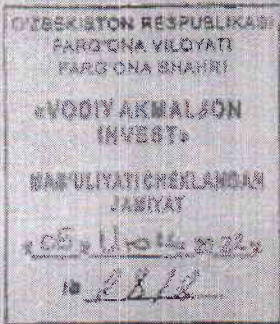 O'ZBEKISTON RESPUBLIKASI
FARG'ONA VILOYATI
FARG'ONA SHAHRI
«VODIY AKMALJON
INVEST»
MAS'ULIYATI CHEKLANGAN
JAMIYAT
2022